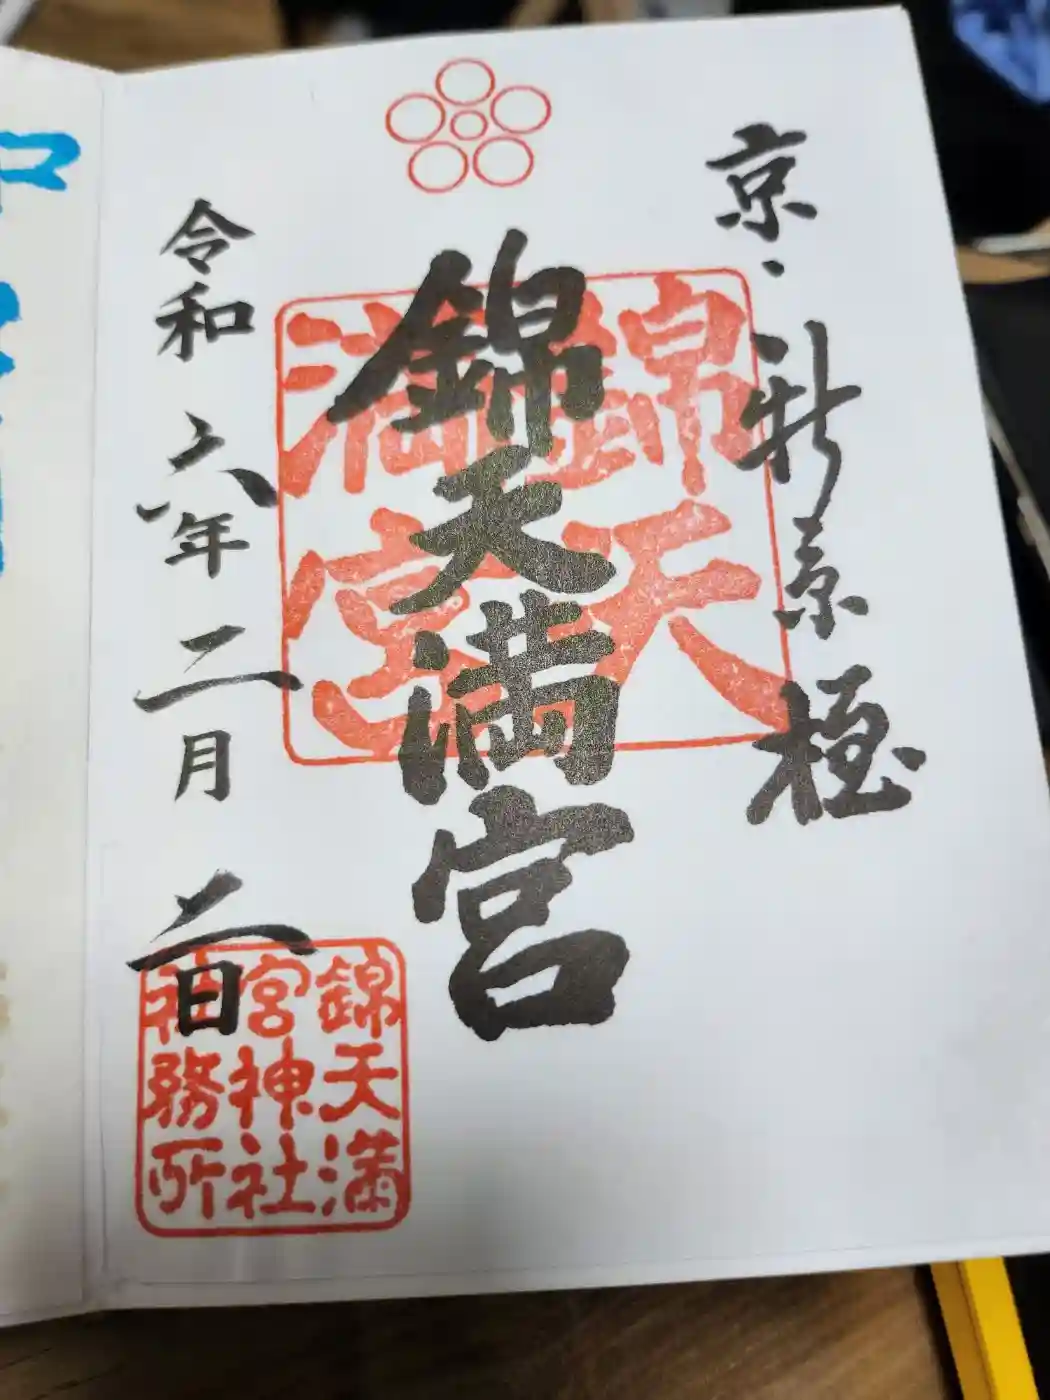 京・新京極
錦天満宮
錦天
満宮
令和六年二月 日
錦天満
宮神社
社務所